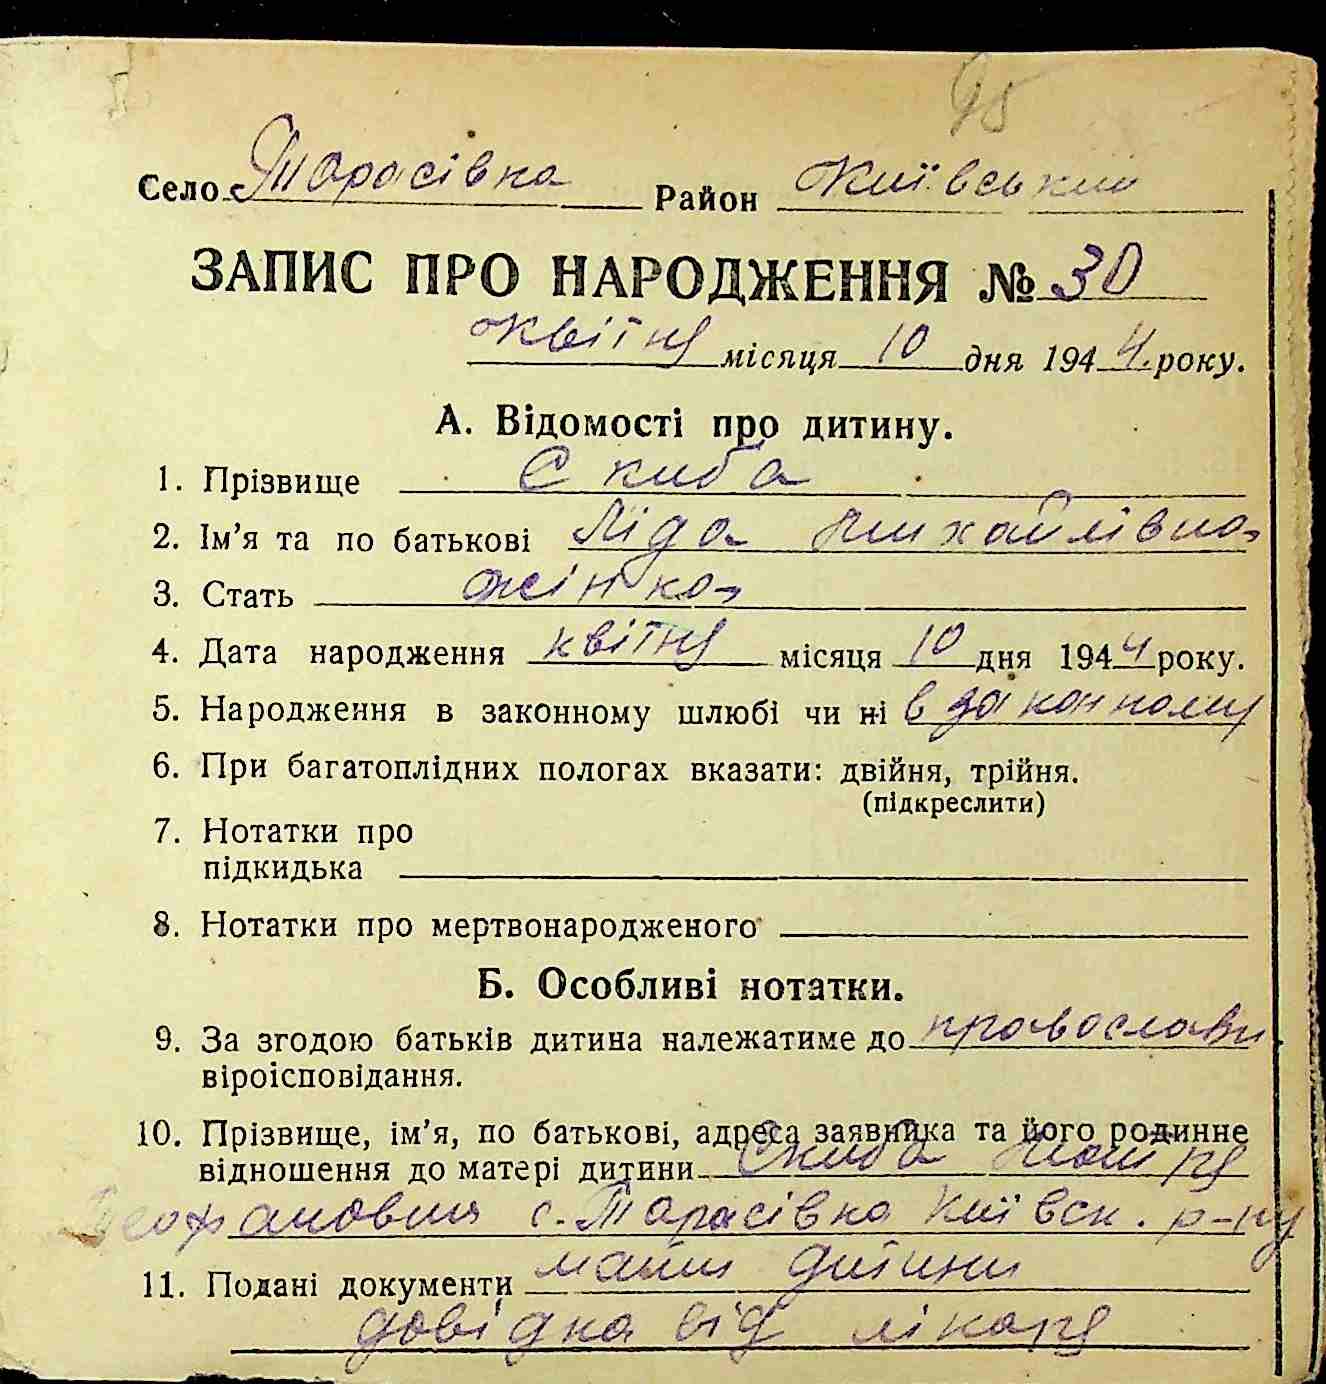 95
Село с. Тарасівка Район Київський
ЗАПИС ПРО НАРОДЖЕННЯ № 30
квітня місяця 10 дня 1944 року.
А. Відомості про дитину.
1. Прізвище Скиба
2. Ім'я та по батькові Ліда Михайлівна
3. Стать жінка
4. Дата народження квітня місяця 10 дня 1944 року.
5. Народження в законному шлюбі чи ні в законному
6. При багатоплідних пологах вказати: двійня, трійня.
(підкреслити)
7. Нотатки про
підкидька
8. Нотатки про мертвонародженого
Б. Особливі нотатки.
9. За згодою батьків дитина належатиме до православн.
віроісповідання.
10. Прізвище, ім'я, по батькові, адреса заявника та його родинне
відношення до матері дитини Скиба
с. Тарасівка Київск. р-ну
11. Подані документи мати дитини
довідка від лікаря